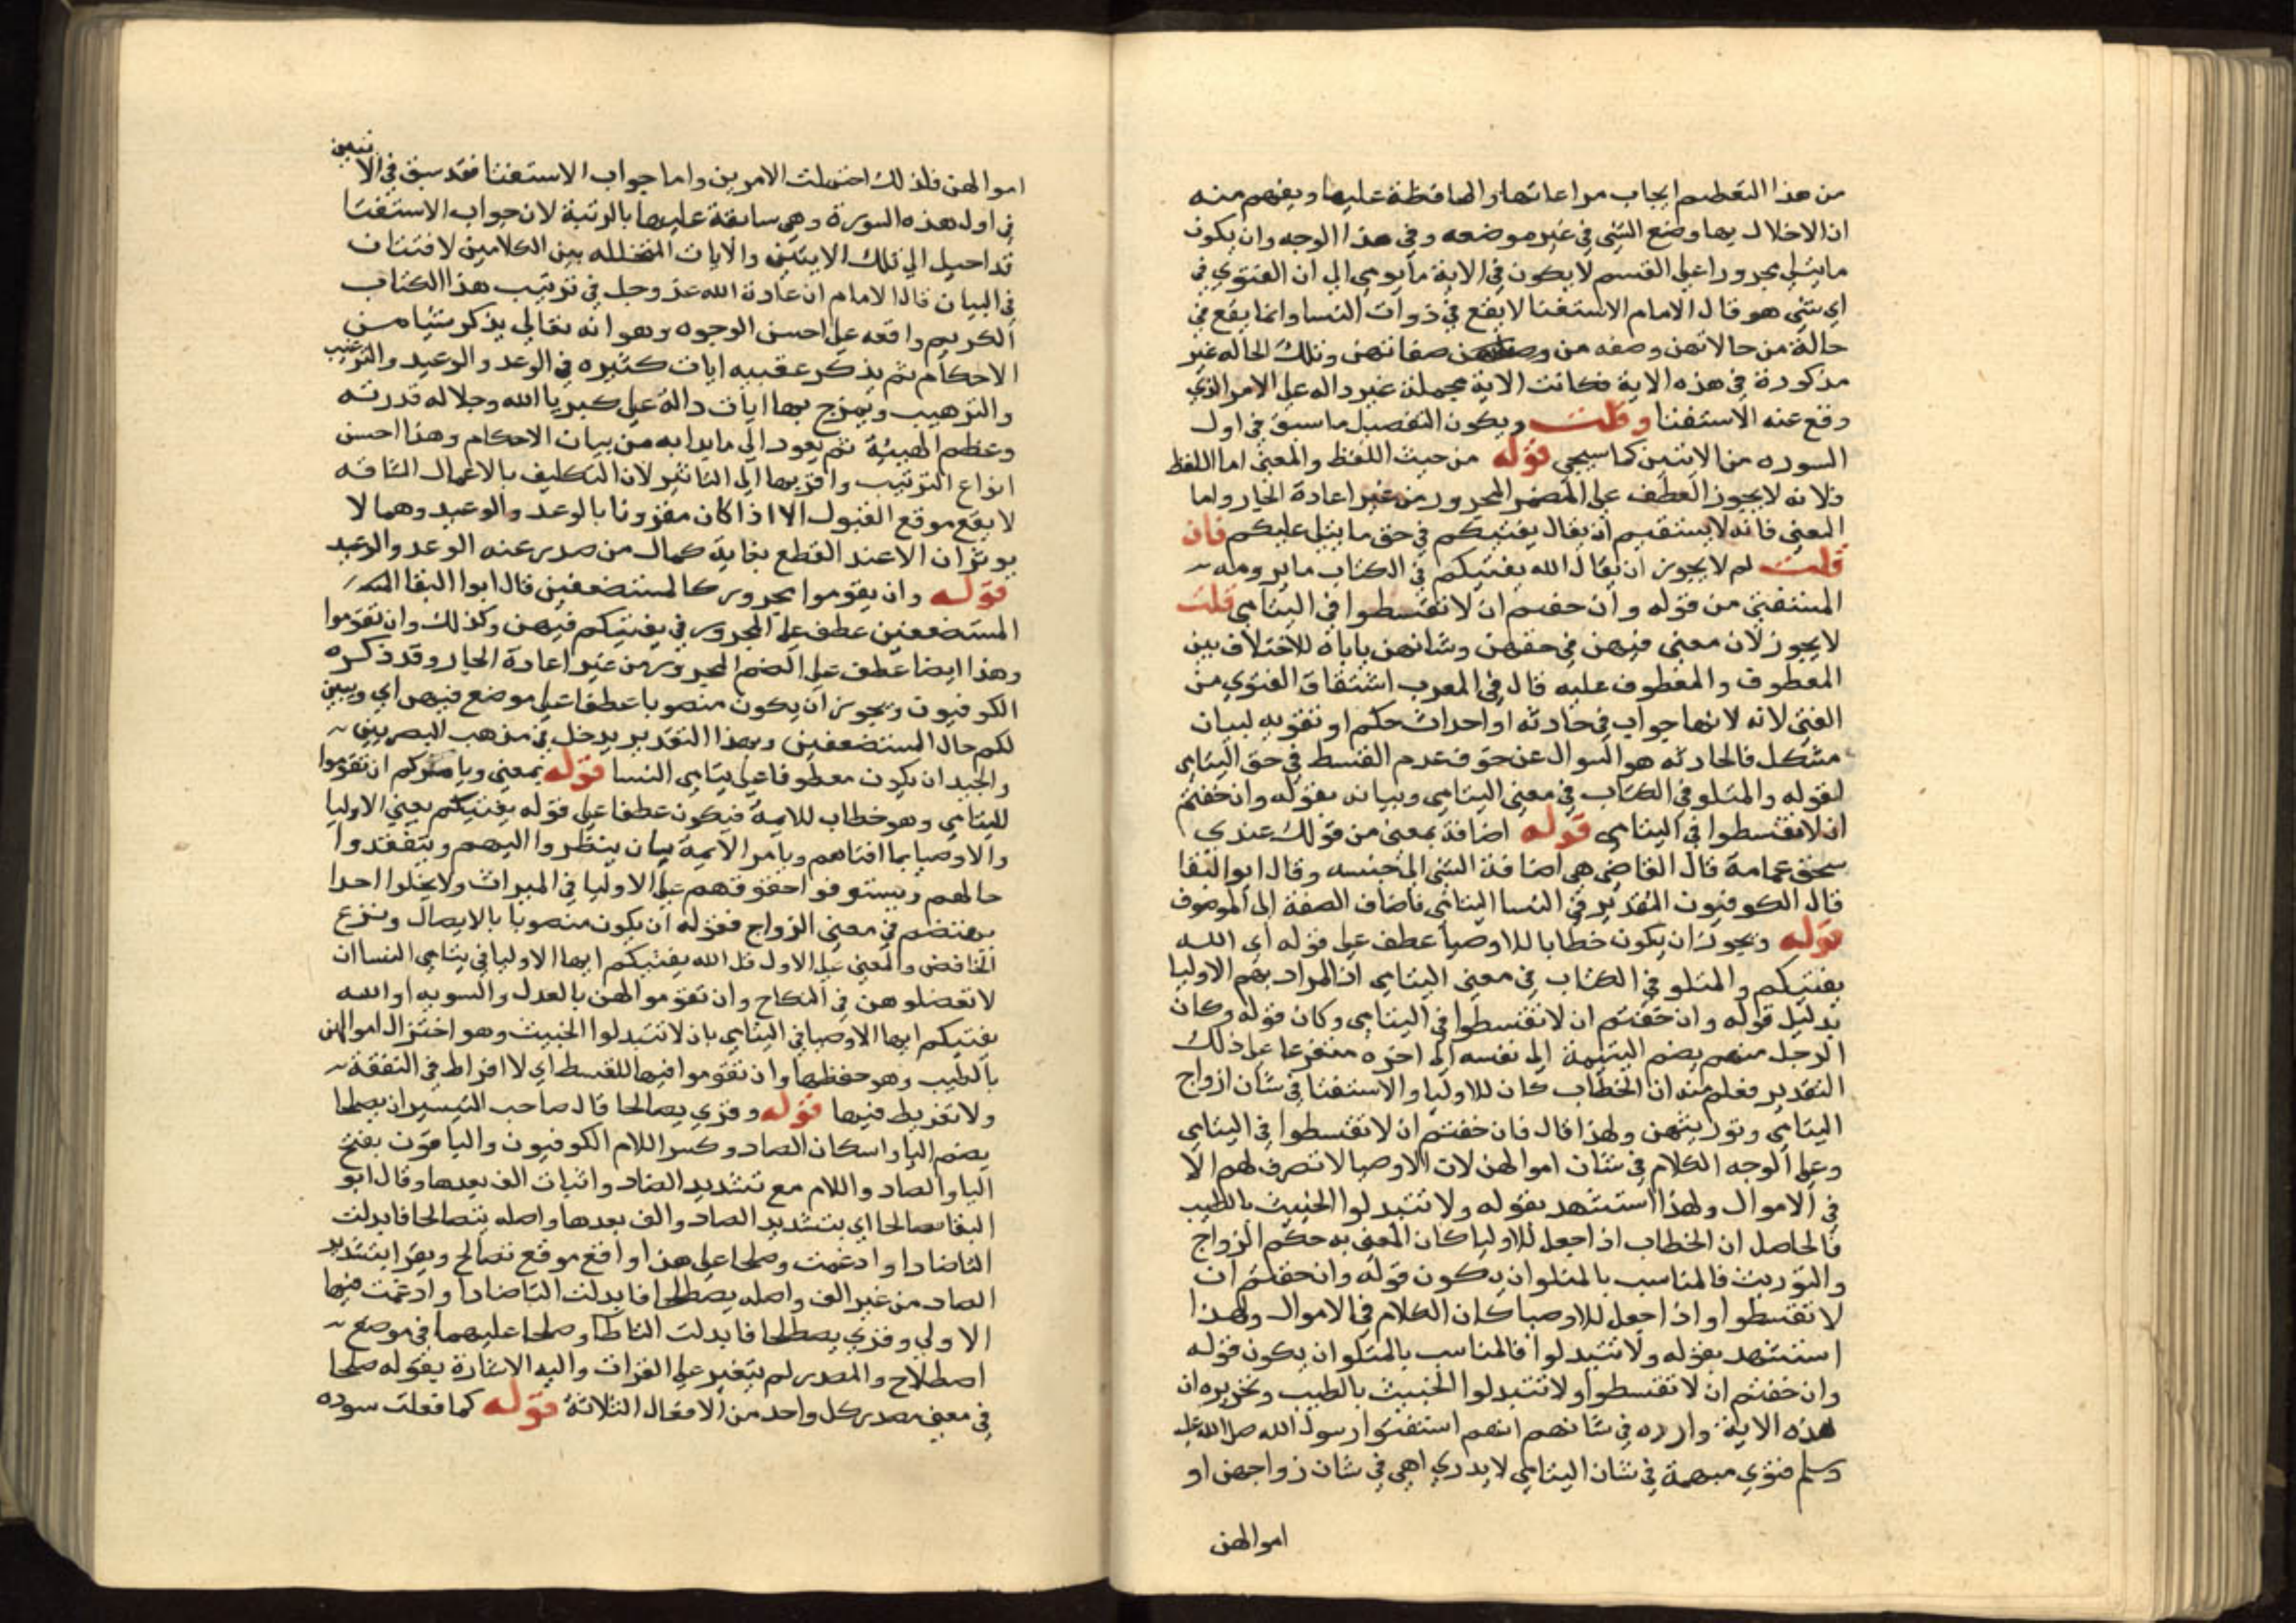 من هذا التعظيم ايجاب مراعاتها والمحافظة عليها ويفهم منه
ان الاخلال بها وضع الشي في غير موضعه وفي هذا الوجه وان يكون
ما يتلي مجرورا علي القسم لا يكون في الاية ما يومي الي ان الفتوي في
اي شي هو قال الامام الاستفتا لا يقع في ذوات النسا وانما يقع في
حالة من حالاتهن وصفه من صفاتهن وتلك الحاله غير
مذكورة في هذه الاية فكانت الاية مجملة غير داله علي الامر الذي
وقع عنه الاستفتا وقلت ويكون التفصيل ما سبق في اول
السوره من الايتين كما سيجي قوله من حيث اللفظ والمعني اما اللفظ
فلانه لا يجوز العطف علي المضمر المجرور من غير اعادة الجار واما
المعني فانه لا يستقيم ان يقال يفتيكم في حق ما يتلي عليكم فان
قلت لم لا يجوز ان يقال الله يفتيكم في الكتاب ما يرومه
المستفتي من قوله وان خفتم ان لا تقسطوا في اليتامي قلت
لا يجوز لان معني فيهن في حقهن وشانهن ياباه للاختلاف بين
المعطوف والمعطوف عليه قال في المغرب اشتقاق الفتوي من
الفتي لانه لانها جواب في حادثه او احداث حكم او تقويه لبيان
مشكل فالحادثه هو السوال عن حق فعدم القسط في حق اليتامي
لقوله والمتلو في الكتاب في معني اليتامي وبيانه بقوله وان خفتم
ان لا تقسطوا في اليتامي قوله اضافة بمعني من قولك عندي
سحق عمامة قال القاضي هي اضافة الشي الي جنسه وقال ابو البقا
قال الكوفيون التقدير في النسا اليتامي فاضاف الصفة الي الموصوف
قوله ويجوز ان يكون خطابا للاوصيا عطف علي قوله اي الله
يفتيكم والمتلو في الكتاب في معني اليتامي ان المراد بهم الاوليا
بدليل قوله وان خفتم ان لا تقسطوا في اليتامي وكان قوله وكان
الرجل منهم يضم اليتيمة الي نفسه الي اخره متفرعا علي ذلك
التقدير فعلم منه ان الخطاب كان للاوليا والاستفتا في شان ازواج
اليتامي وتوريثهن ولهذا قال فان خفتم ان لا تقسطوا في اليتامي
وعلي الوجه الكلام في شان اموالهن لان الاوصيا لا تصرف لهم الا
في الاموال ولهذا استشهد بقوله ولا تتبدلوا الخبيث بالطيب
فالحاصل ان الخطاب اذا جعل للاوليا كان المعني به حكم الزواج
والتوريث فالمناسب بالمتلو ان يكون قوله وان خفتم ان
لا تقسطوا واذا جعل للاوصيا كان الكلام في الاموال ولهذا
استشهد بقوله ولا تتبدلوا فالمناسب بالمتلو ان يكون قوله
وان خفتم ان لا تقسطوا ولا تتبدلوا الخبيث بالطيب وتحريره ان
هذه الاية وارده في شانهم انهم استفتوا رسول الله صلي الله عليه
وسلم فتوي مبهمة في شان اليتامي لا يدري اهي في شان زواجهن او
اموالهن
اموالهن فلذلك احتملت الامرين واما جواب الاستفتا فقد سبق في الايتين
في اول هذه السورة وهي سابقة عليها بالرتبة لان جواب الاستفتا
قد احيل الي تلك الايتين والايات المتخلله بين الكلامين لافتنان
في البيان قال الامام ان عادة الله عز وجل في ترتيب هذا الكتاب
الكريم واقعه علي احسن الوجوه وهو انه تعالي يذكر شيا من
الاحكام ثم يذكر عقيبه ايات كثيره في الوعد والوعيد والترغيب
والترهيب ويمزج بها ايات دالة علي كبريا الله وجلاله قدرته
وعظم الهيبية ثم يعود الي ما بدا به من بيان الاحكام وهذا احسن
انواع الترتيب واقربها الي التاثير لان التكليف بالاعمال الشاقه
لا يقع موقع القبول الا اذا كان مقرونا بالوعد والوعيد وهما لا
يوثران الا عند القطع بغاية كمال من صدر عنه الوعد والوعيد
قوله وان يقوموا مجرور كالمستضعفين قال ابو البقا
المستضعفين عطف علي المجرور في يفتيكم فيهن وكذلك وان تقوموا
وهذا ايضا عطف علي الضمير المجرور من غير اعادة الجار وقد ذكره
الكوفيون ويجوز ان يكون منصوبا عطفا علي موضع فيهن اي ويبين
لكم حال المستضعفين وبهذا التقدير يدخل في مذهب البصريين
والجيد ان يكون معطوفا علي يتامي النسا قوله بمعني ويامركم ان تقوموا
لليتامي وهو خطاب للايمة فيكون عطفا علي قوله يفتيكم يعني الاوليا
والاوصيا بما افتاهم ويامر الايمة بان ينظروا اليهم ويتفقدوا
حالهم ويستوفوا حقوقهم علي الاوليا في الميراث ولا يخلوا احدا
يهتضم في معني الزواج فقوله ان يكون منصوبا بالايصال ونزع
الخافض والمعني علي الاول قل الله يفتيكم ايها الاوليا في يتامي النسا ان
لا تعضلوهن في النكاح وان تقوموا لهن بالعدل والسويه او الله
يفتيكم ايها الاوصيا في اليتامي بان لا تتبدلوا الخبيث وهو اختزال اموالهن
بالطيب وهو حفظها وان تقوموا فيها للقسط اي لا افراط في النفقة
ولا تفريط فيها قوله وقري يصالحا قال صاحب التيسير ان يصلحا
بضم اليا واسكان الصاد وكسر اللام الكوفيون والباقون بفتح
اليا والصاد واللام مع تشديد الصاد واثبات الف بعدها وقال ابو
البقا يصالحا اي بتشديد الصاد والف بعدها واصله يتصالحا فابدلت
التا صادا وادغمت وصلحا علي هذا واقع موقع تصالح ويقرا بتشديد
الصاد من غير الف واصله يصطلحا فابدلت التا صادا وادغمت فيها
الاولي وقري يصطلحا فابدلت التا طا وصلحا عليهما في موضع
اصطلاح والمصدر لم يتغير علي القرات واليه الاشارة بقوله صلحا
في معني مصدر كل واحد من الافعال الثلاثة قوله كما فعلت سوده